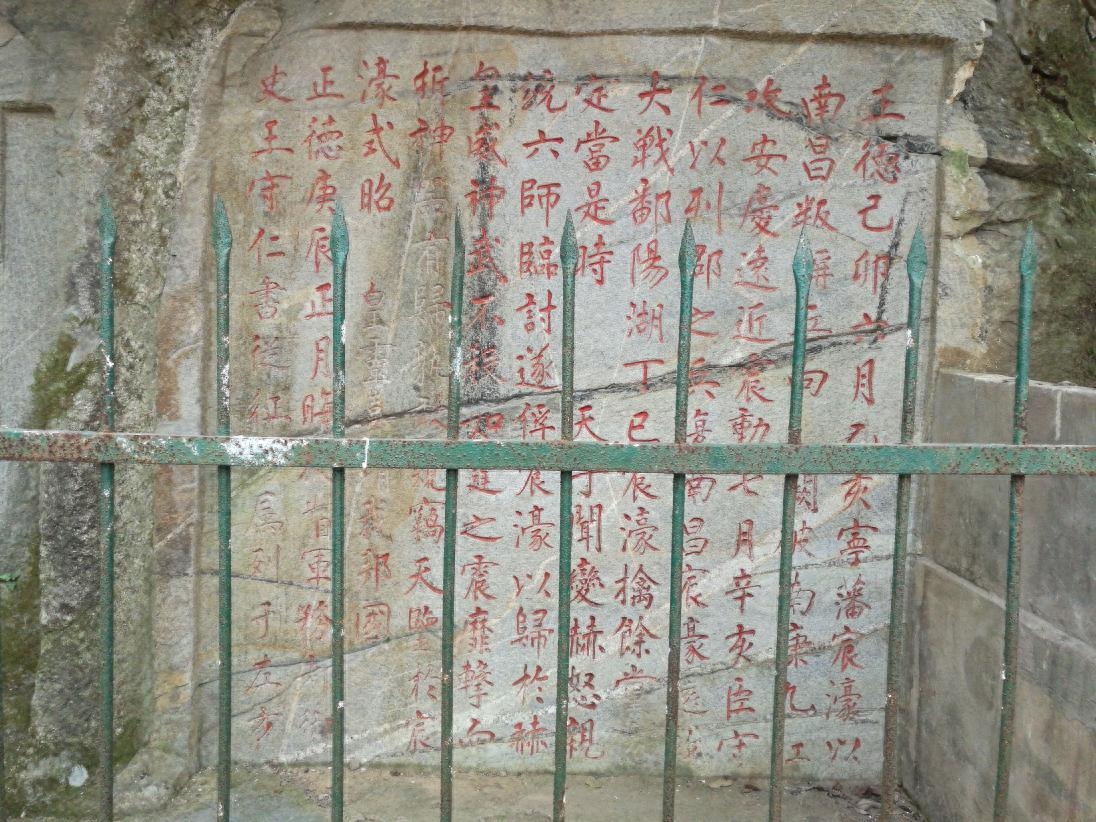 正德己卯六月乙亥寧藩宸濠以
南昌叛稱兵向闕破南康九江
攻安慶遠近震動七月辛亥臣守
仁以列郡之兵復南昌宸濠還救
大戰鄱陽湖丁巳宸濠擒餘黨
定當是時 天子聞變赫怒親
統六師臨討遂俘宸濠以歸於赫
皇威神武不殺如霆之震靡擊而
折神器有歸孰敢窺竊天鑒於宸
濠式昭 皇靈靖我邦國
正德庚辰正月晦督軍務都御
史王守仁書從征屬列于左方